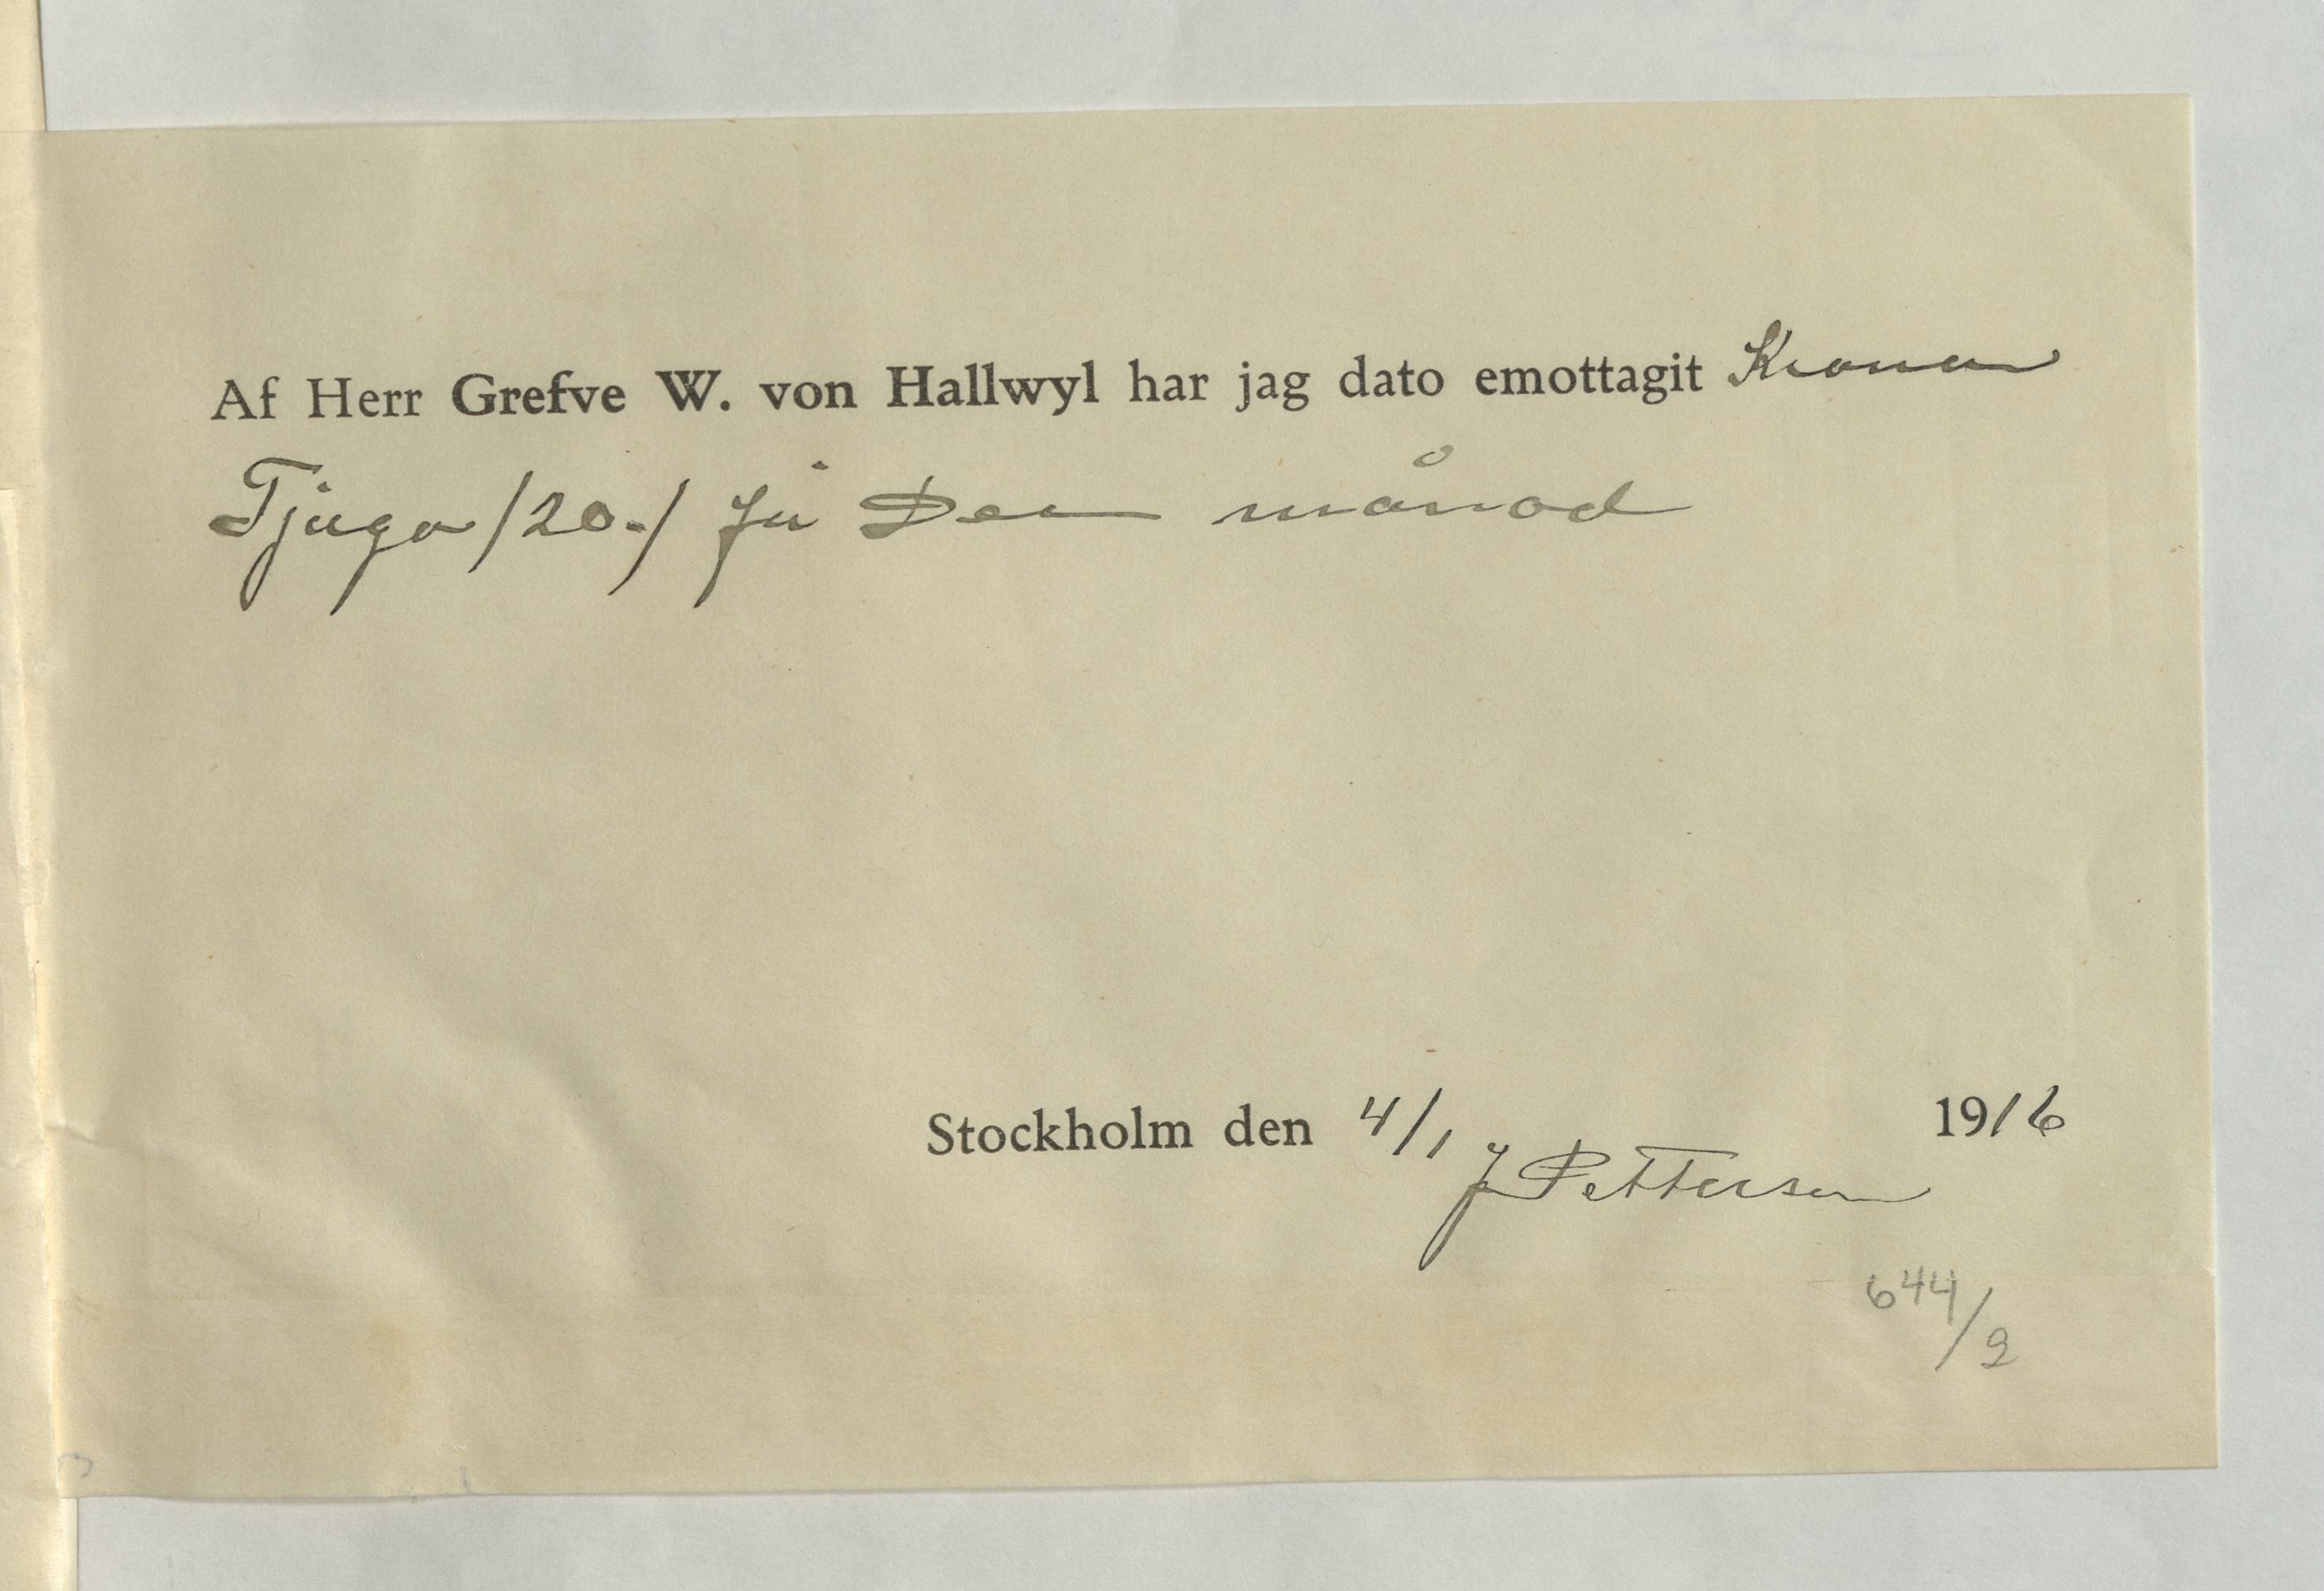 Af Herr Grefve W. von Hallwyl har jag dato emottagit Kronor
Tjugo /20.-/ för Dec månad
Stockholm den 4/1 1916
J Petterson
644/2